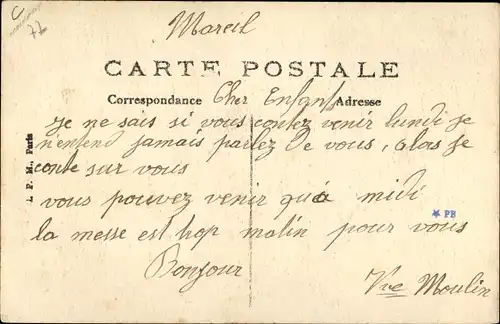 77
Mareil
CARTE POSTALE
Correspondance Cher Enfant Adresse
Je ne sais si vous contez venir lundi je
n'entend jamais parlez de vous, alors je
conte sur vous
vous pouvez venir qu'à midi
la messe est trop matin pour vous
Bonjour
Vve Moulin
I. P. M., Paris
* PB